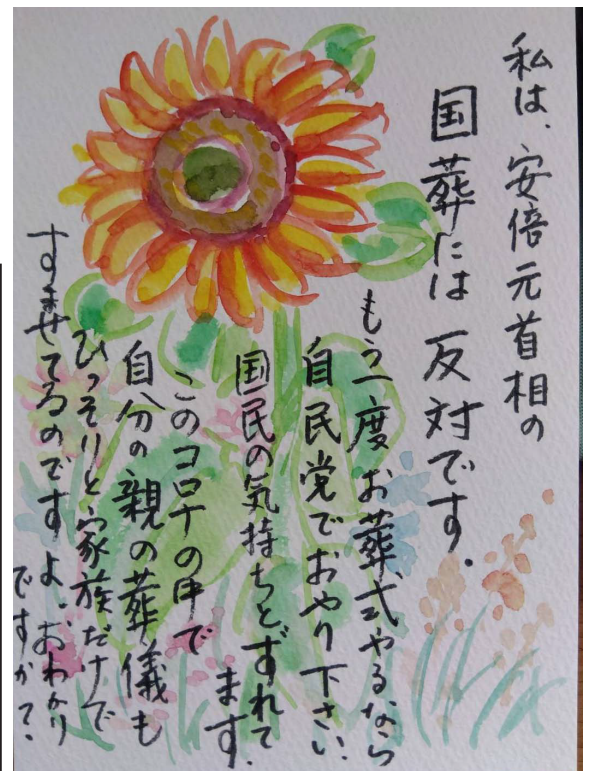 私は、安倍元首相の
国葬には反対です．
もう一度お葬式やるなら
自民党でおやり下さい．
国民の気持ちとずれて
ます．
このコロナの中で
自分の親の葬儀も
ひっそりと家族だけで
すませてるのですよ、おわかり
ですか？